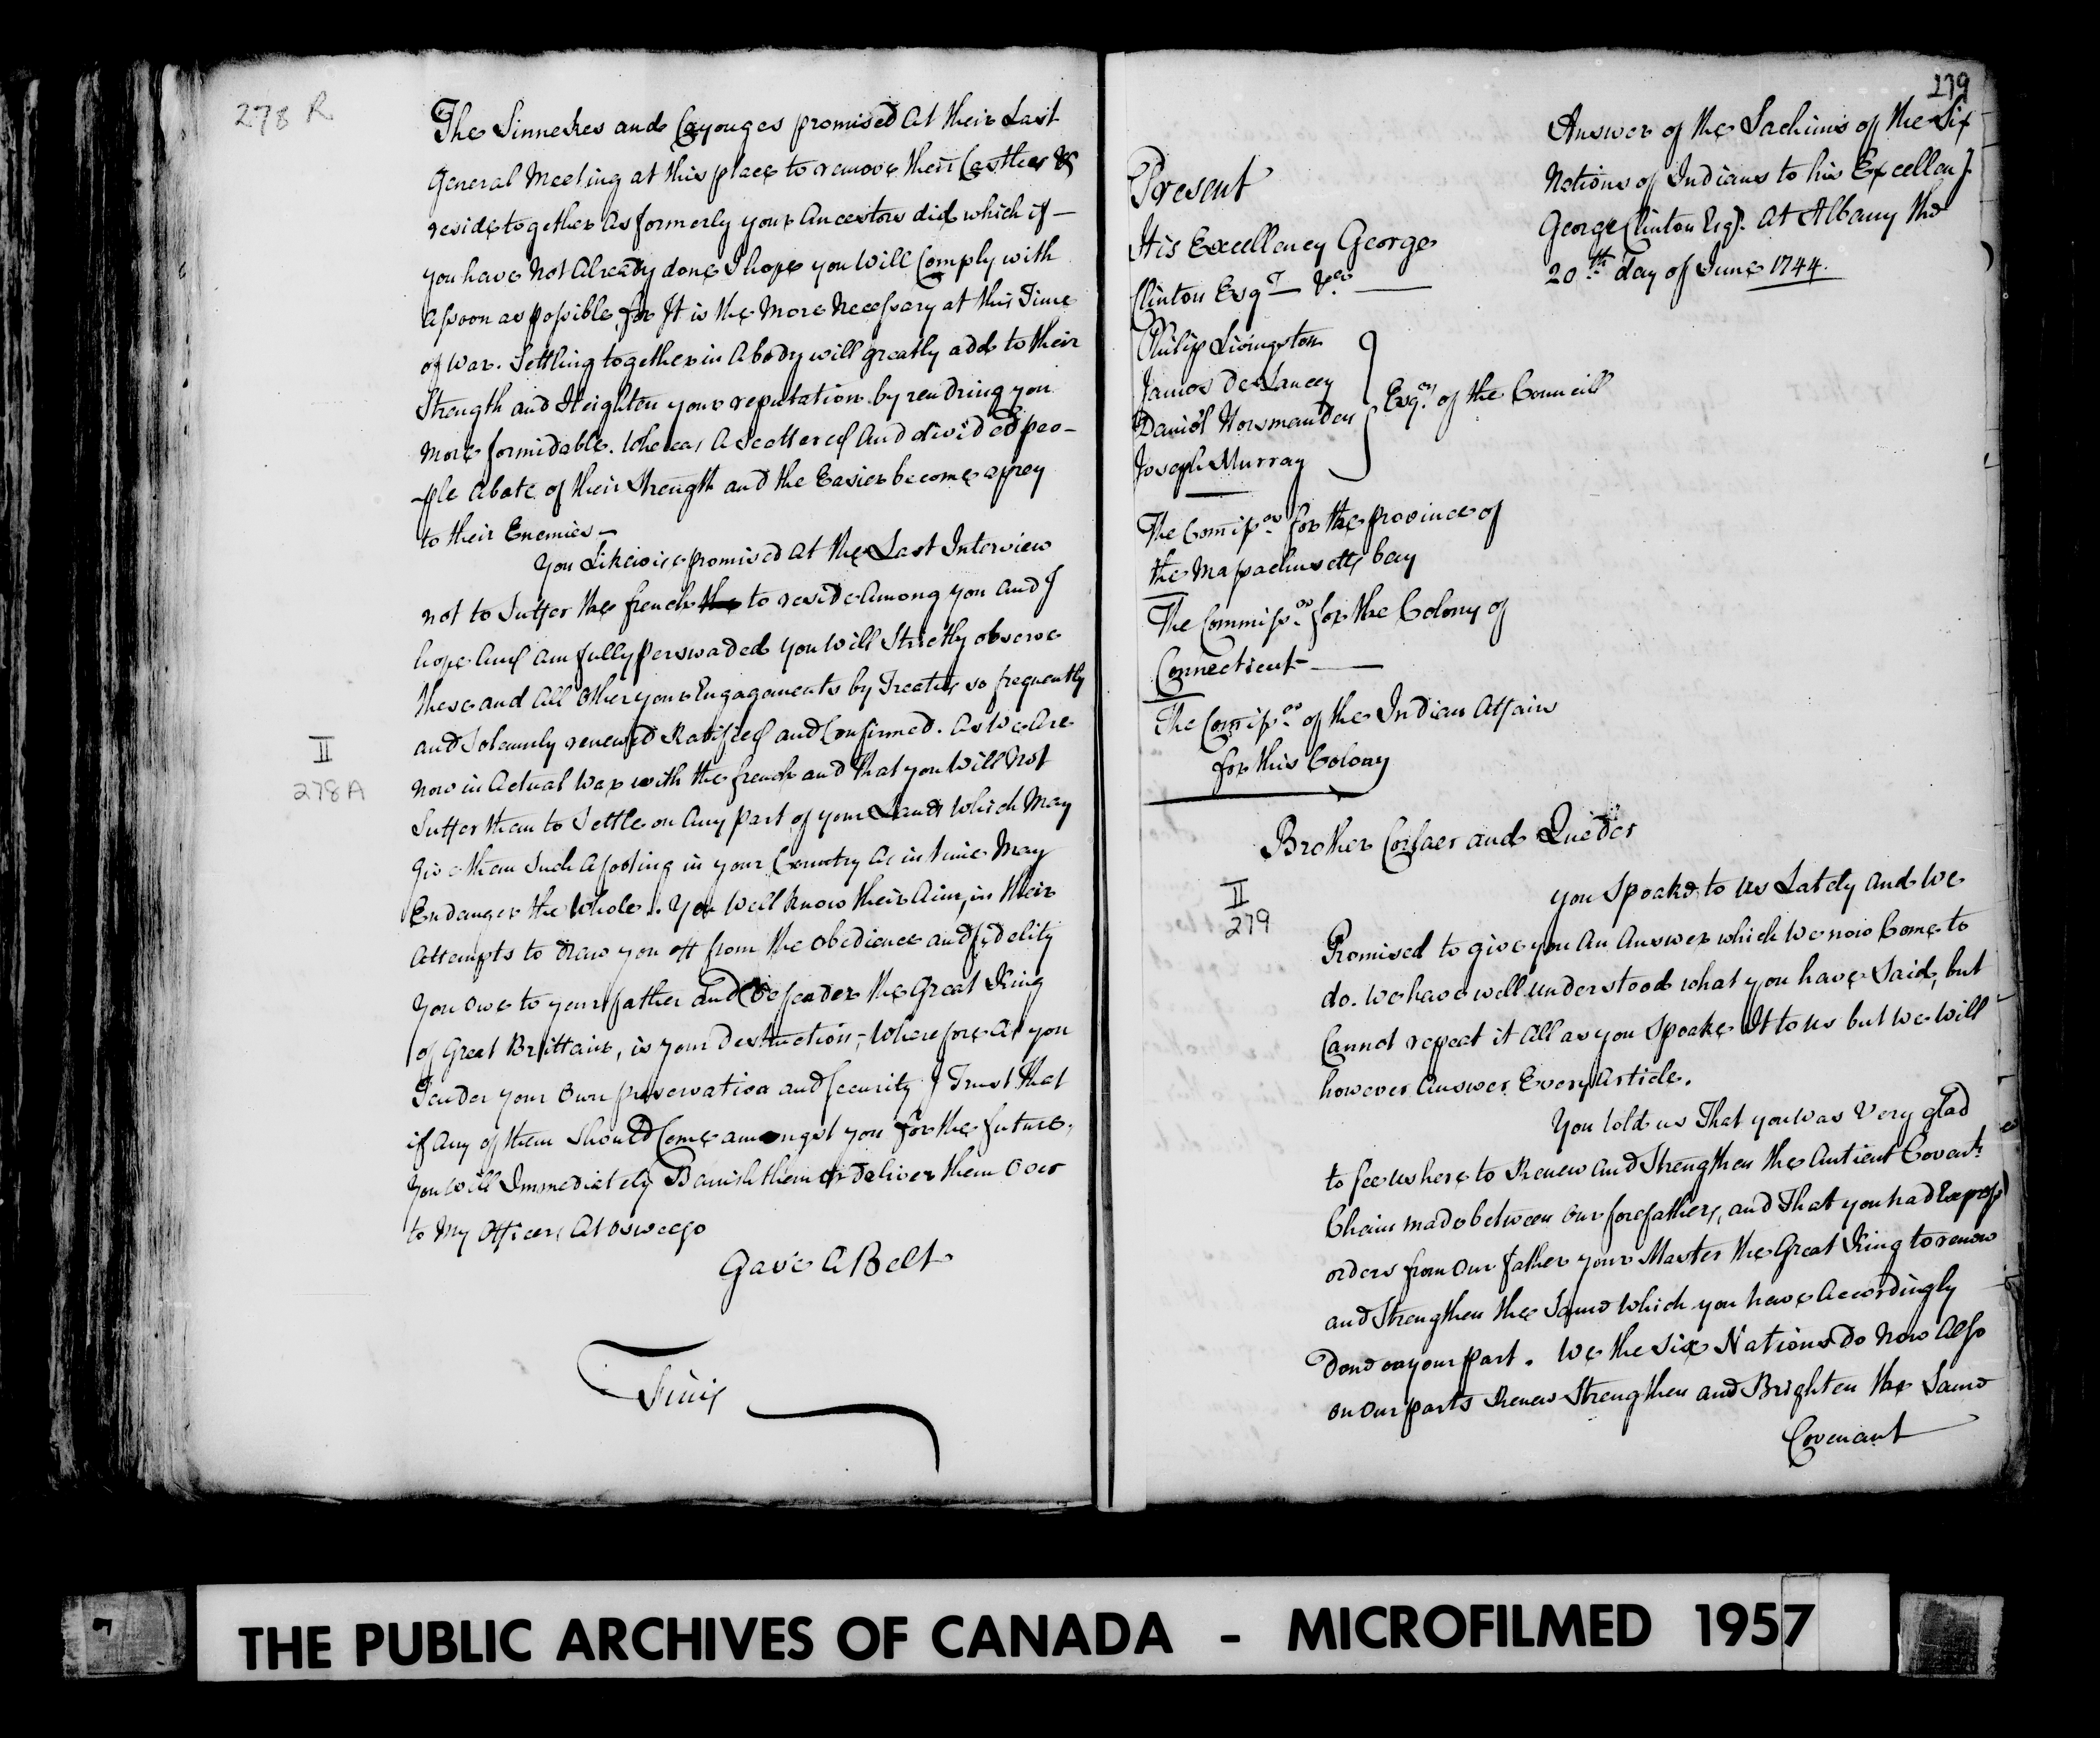 278 R
The Sinnekes and Cayouges promised at their Last
General Meeting at this place to remove their Castles &
reside together as formerly your Ancestors did which if —
you have not Already done I hope you will Comply with
assoon as possible, for It is the more necessary at this Time
of war. Settling together in a body will greatly add to their
Strength and Heighten your reputation by rendring you
more formidable. Whereas a Scattered And divided peo-
-ple abate of their Strength and the Easier become a prey
to their Enemies —
You Likewise promised at the Last Interview
not to Suffer the french to reside Among you and I
hope and am fully perswaded you will Strictly observe
these and all other your Engagements by Treaties so frequently
and Solemnly renewed Ratifieed and Confirmed. As We Are
II
278A
now in Actual War with the french and that you Will not
Suffer them to Settle on Any part of your Lands which May
give them Such a footing in your Country as in time May
Endanger the Whole. You Well know their Aim, in their
Attempts to draw you off from the obedience and fidelity
you owe to your father and Defender the Great King
of Great Brittain, is your Destruction; Wherefore as you
Tender your own preservation and Security I Trust That
if any of them should Come amongst you for the future,
you will Immediately Banish them or deliver them over
to My Officers At Oswego
Gave A Belt
Finis
279
Answer of the Sachims of the Six
Nations of Indians to his Excellency
George Clinton Esqr. at Albany the
20th day of June 1744.
Present
His Excellency George
Clinton Esqr — &ca —
Philip Livingston
James De Lancey
Daniel Horsmanden
Joseph Murray
Esqrs of the Councill
The Comissrs for the province of
the Massachusetts bay
The Commissrs for the Colony of
Connecticut —
The Comissrs of the Indian Affairs
for this Colony
Brother Corlaer and Queder
II
279
you Spoake to us Lately and We
Promised to give you An Answer which we now Come to
do. we have well understood what you have Said, but
Cannot repeat it All as you Spoake It to us but we will
however Answer Every Article.
You told us That you was Very glad
to see us here to Renew and Strengthen the Antient Covent.
Chain made between our forefathers, and That you had Express
orders from Our father your Master the Great King to renew
and Strengthen the Same which you have Accordingly
Done on your part. We the Six Nations do Now Also
on Our parts Renew Strengthen and Brighten the Same
Covenant
THE PUBLIC ARCHIVES OF CANADA - MICROFILMED 1957